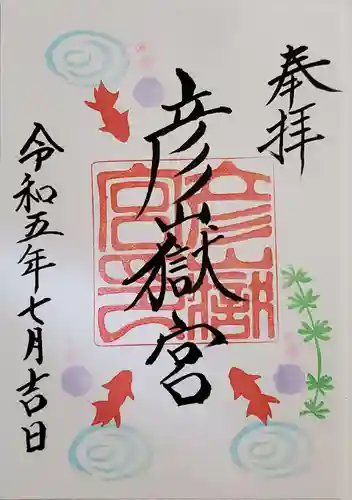 奉拝
彦嶽宮
彦嶽宮印
令和五年七月吉日